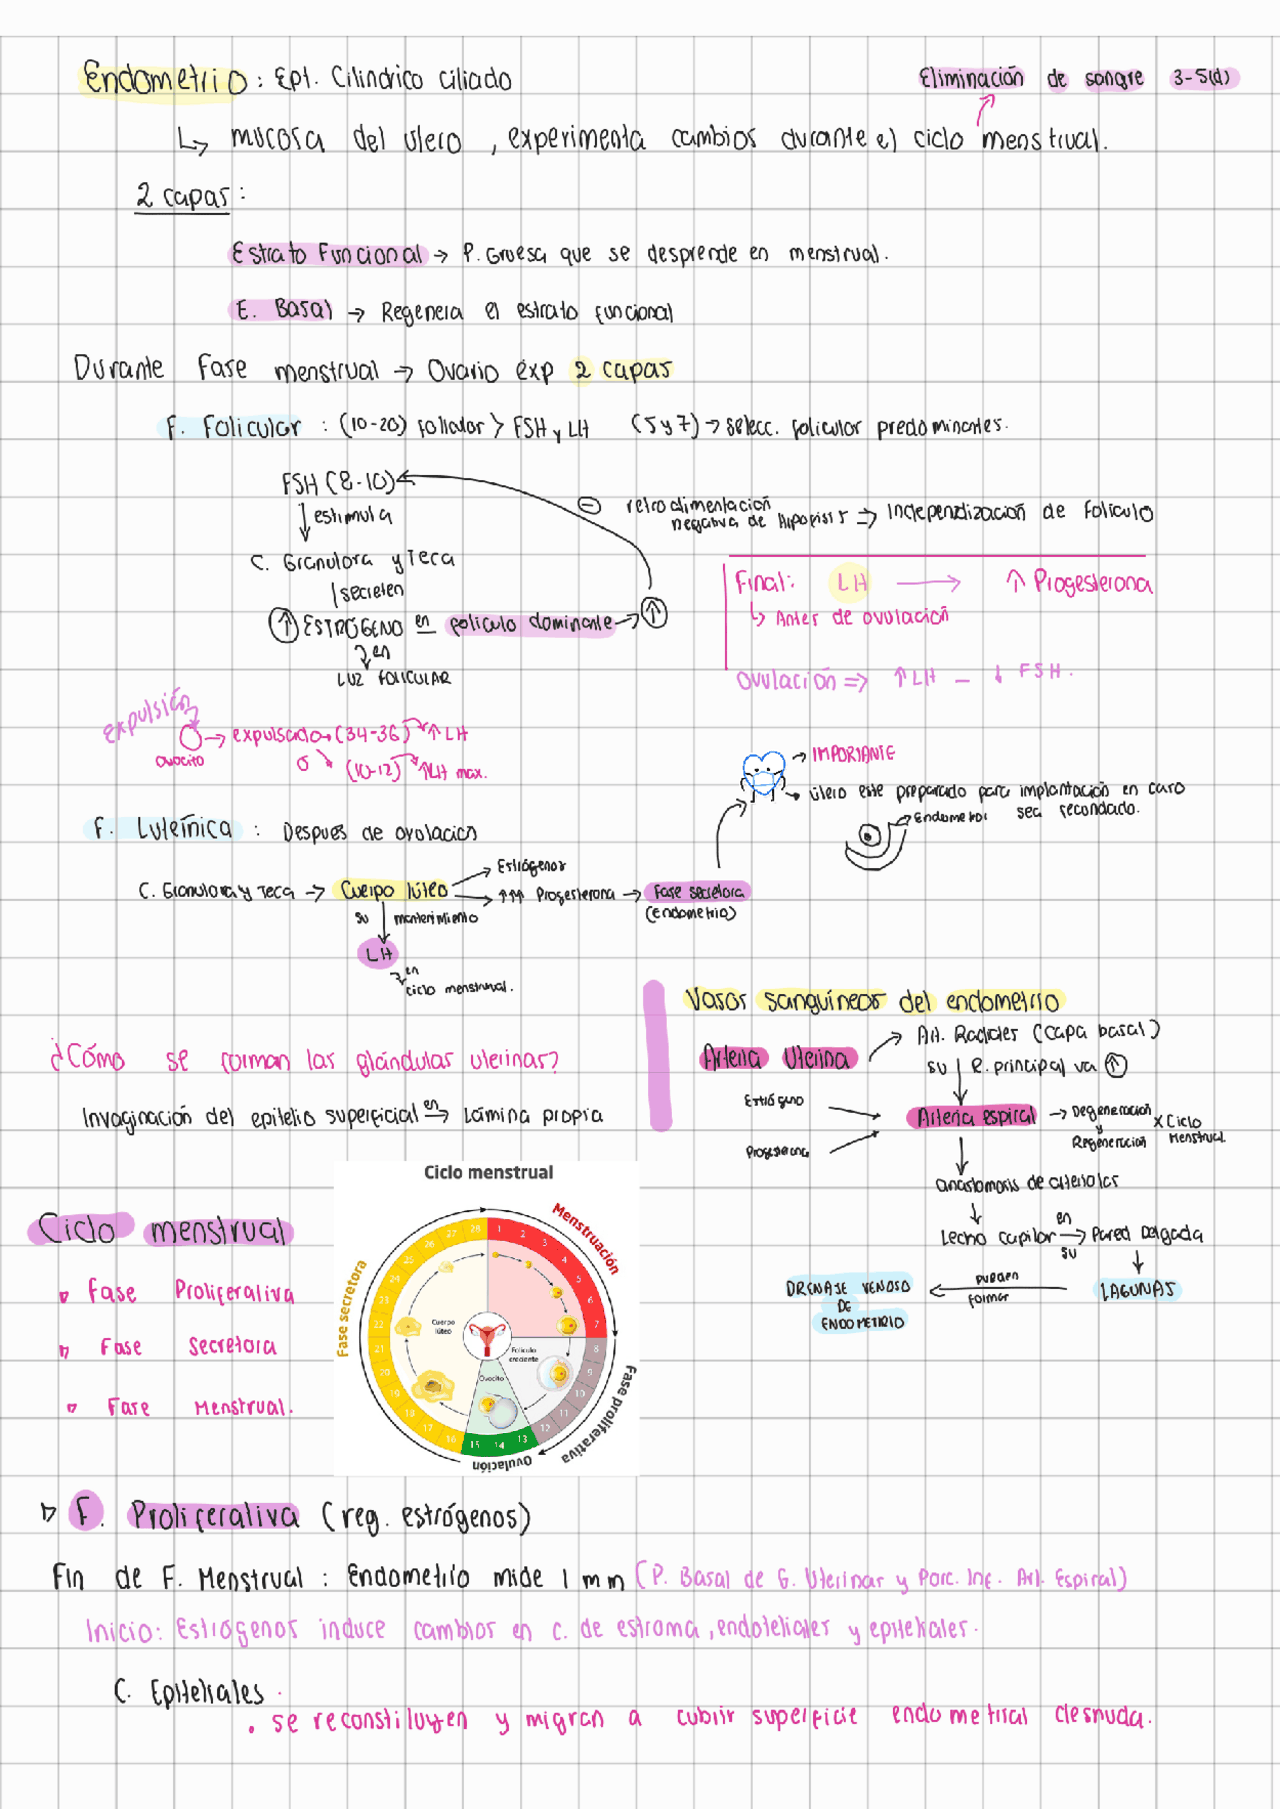 Endometrio: Ept. Cilíndrico ciliado
Eliminación de sangre 3-5(d)
↳ mucosa del utero, experimenta cambios durante el ciclo menstrual.
2 capas:
Estrato Funcional → P. Gruesa que se desprende en menstrual.
E. Basal → Regenera el estrato funcional
Durante Fase menstrual → Ovario exp 2 capas
F. Folicular : (10-20) foliculor > FSH y LH (5 y 7) → selecc. folicular predominantes.
FSH (8-10)
↓ estimula
⊖ retroalimentación
negativa de Hipofisis ⇒ Independización de Folículo
C. Granulora y Teca
secreten
↑ ESTRÓGENO en folículo dominante → ↑
en
LUZ FOLICULAR
Final: LH → ↑ Progesterona
↳ Antes de ovulación
Ovulación ⇒ ↑ LH - ↓ FSH.
Expulsión
ovocito → expulsado → (34-36) ↑ LH
o (10-12) ↑ LH max.
→ IMPORTANTE
→ útero este preparado para implantación en caso
sea fecondado.
Endometrio
F. Luteínica : Despues de ovolacion
C. Granulora y Teca → Cuerpo lúteo
Estrógenor
↑↑↑ Progesterona → Fase secretora
(endometrio)
su mantenimiento
LH
en
ciclo menstrual.
Vasos sanguíneos del endometrio
Arteria Uterina
Art. Radiales (capa basal)
su R. principal va ↑
Estrógeno
Progesterona
Arteria espiral → Degeneración
y
Regeneración
x Ciclo
Menstrual.
anastomosis de arteriolas
↓
Lecho capilar en → Pared Delgada
su
↓
LAGUNAS
pueden
formar
DRENAJE VENOSO
DE
ENDOMETRIO
¿Cómo se forman las glándulas uterinas?
Invaginación del epitelio superficial en → Lámina propia
Ciclo menstrual
▹ Fase Proliferativa
▹ Fase Secretora
▹ Fase Menstrual.
Ciclo menstrual
Menstruación
Fase proliferativa
Ovulación
Fase secretora
1 2 3 4 5 6 7 8 9 10 11 12 13 14 15 16 17 18 19 20 21 22 23 24 25 26 27 28
Cuerpo
lúteo
Folículo
creciente
Ovocito
▹ F. Proliferativa (reg. estrógenos)
Fin de F. Menstrual : Endometrio mide 1 mm (P. Basal de G. Uterinar y Porc. Inf. Art. Espiral)
Inicio: Estrógenos induce cambios en c. de estroma, endoteliales y epiteliales.
C. Epiteliales
. se reconstituyen y migran a cubrir superficie endometrial desnuda.